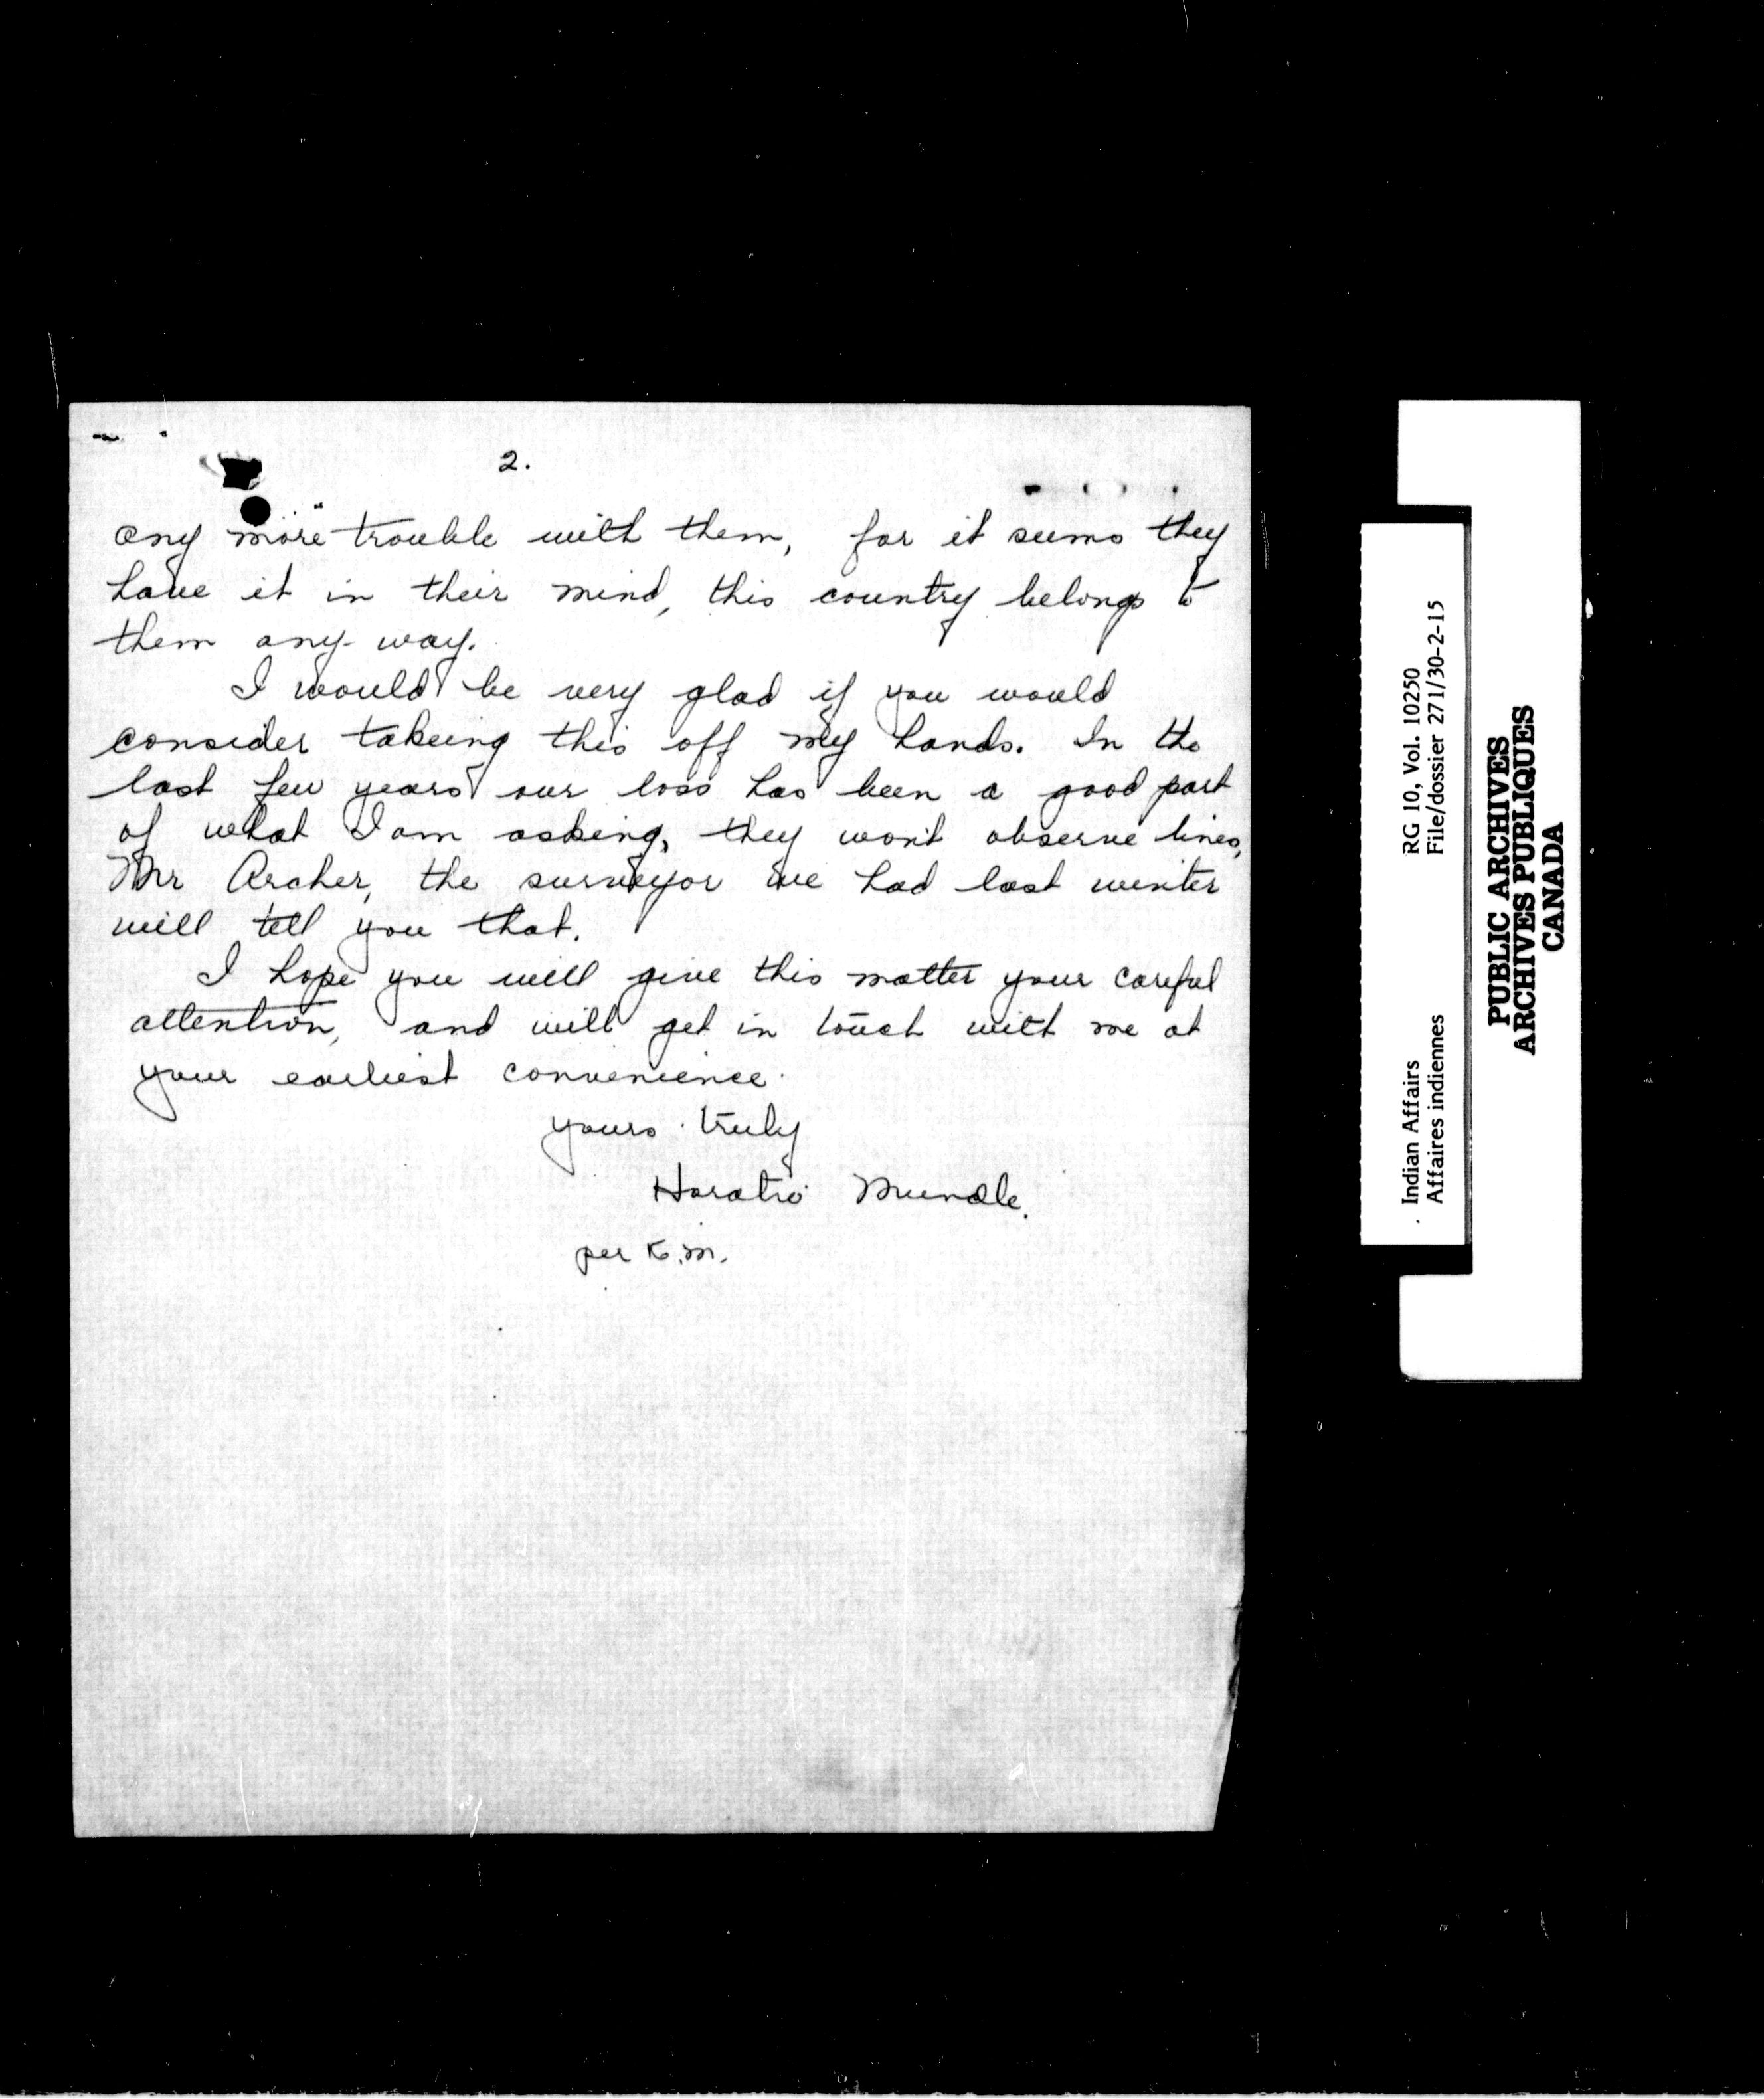 2.
any more trouble with them, for it seems they
have it in their mind, this country belongs to
them any-way.
I would be very glad if you would
consider takeing this off my hands. In the
last few years our loss has been a good part
of what I am asking, they won't observe lines,
Mr Archer, the surveyor we had last winter
will tell you that.
I hope you will give this matter your careful
attention, and will get in touch with me at
your earliest convenience.
yours truly
Horatio Mundle.
per K.M.
Indian Affairs RG 10, Vol. 10250
Affaires indiennes File/dossier 271/30-2-15
PUBLIC ARCHIVES
ARCHIVES PUBLIQUES
CANADA